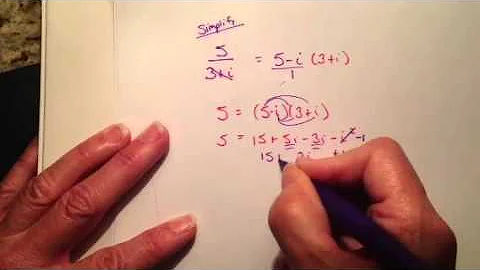 Simplify
5/(3+i) = (5-i)/1 (3+i)
5 = (5-i)(3+i)
5 = 15 + 5i - 3i - i² -1
15 + 2i +1